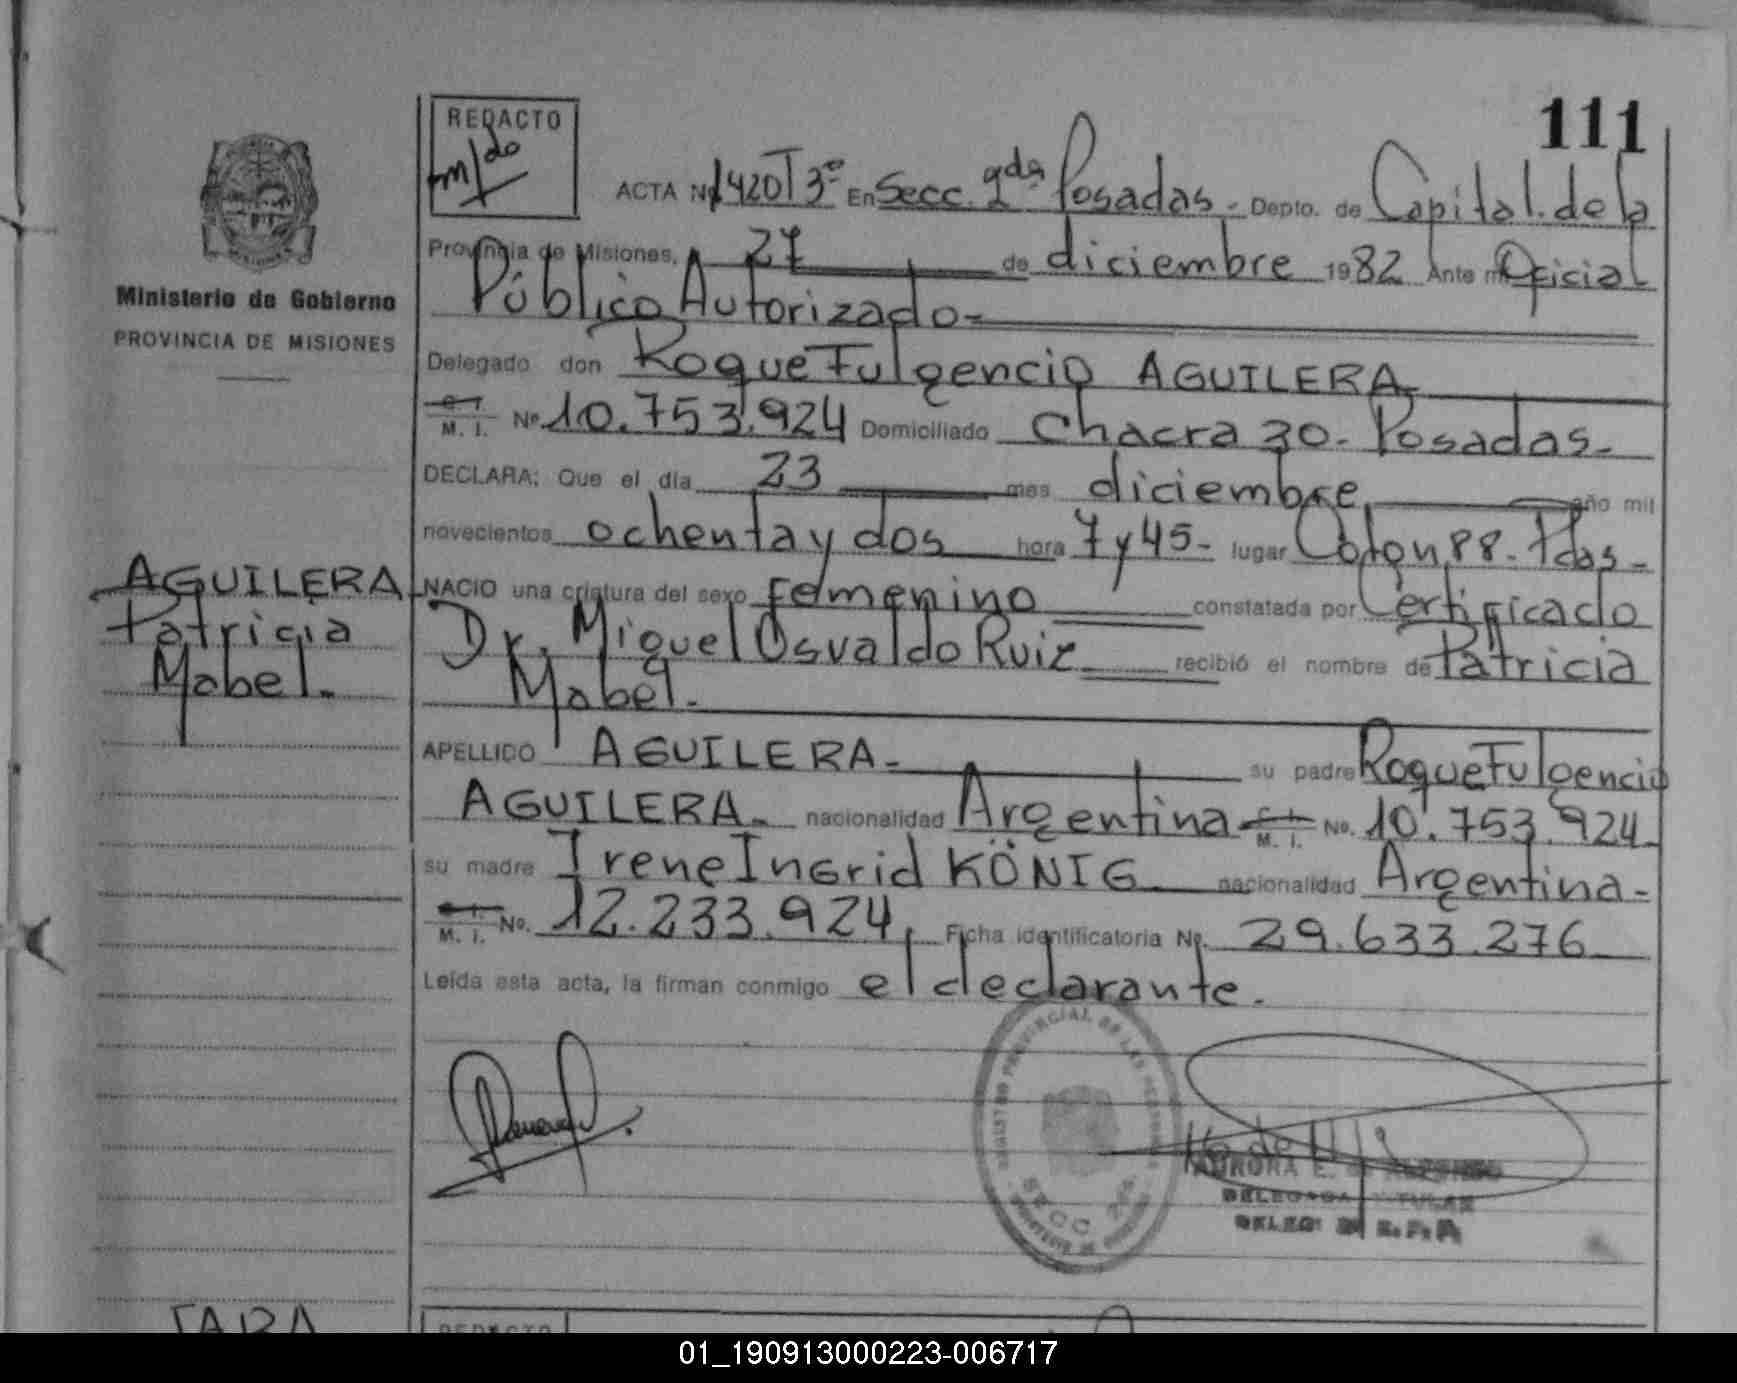 111
REDACTO
ACTA Nº 1420 T3º En Secc. 2da Posadas - Depto. de Capital. de la
Provincia de Misiones, A 27 de diciembre 1982 Ante mi Oficial
Público Autorizado -
Delegado don Roque Fulgencio AGUILERA
C. I.
M. I. Nº 10.753.924 Domiciliado Chacra 30. Posadas -
DECLARA: Que el día 23 mes diciembre año mil
novecientos ochenta y dos hora 7 y 45 - lugar Colon 88. Pdas -
NACIO una criatura del sexo femenino constatada por Certificado
Dr. Miguel Osvaldo Ruiz recibió el nombre de Patricia
Mabel. -
APELLIDO AGUILERA - su padre Roque Fulgencio
AGUILERA - nacionalidad Argentina C. I. M. I. No. 10.753.924
su madre Irene Ingrid KÖNIG nacionalidad Argentina -
C. I.
M. I. No. 12.233.924, Ficha identificatoria Nº. 29.633.276
Leída esta acta, la firman conmigo el declarante.
Ministerio de Gobierno
PROVINCIA DE MISIONES
AGUILERA
Patricia
Mabel. -
REGISTRO PROVINCIAL DE LAS PERSONAS
SECC. 2da.
AURORA E.
DELEGADA TITULAR
REDACTO
01_190913000223-006717